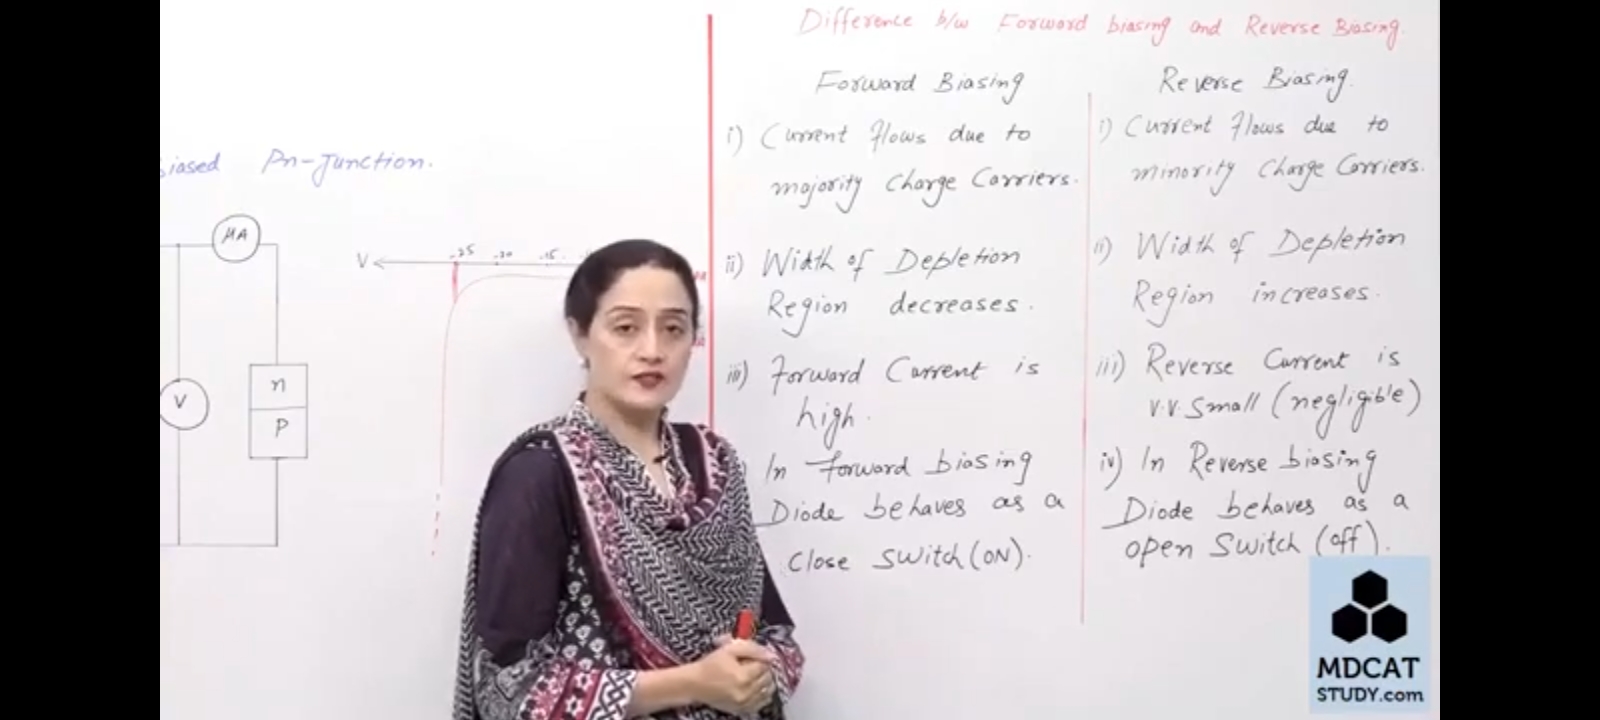 Difference b/w Forward biasing and Reverse Biasing.
Pn-Junction.
μA
V
n
P
V
-25 -20 -15
Forward Biasing
i) Current flows due to
majority Charge Carriers.
ii) Width of Depletion
Region decreases.
iii) Forward Current is
high.
In Forward biasing
Diode behaves as a
Close Switch (ON).
Reverse Biasing.
i) Current flows due to
minority Charge Carriers.
ii) Width of Depletion
Region increases.
iii) Reverse Current is
V.V. Small (negligible)
iv) In Reverse biasing
Diode behaves as a
open Switch (off).
MDCAT
STUDY.com